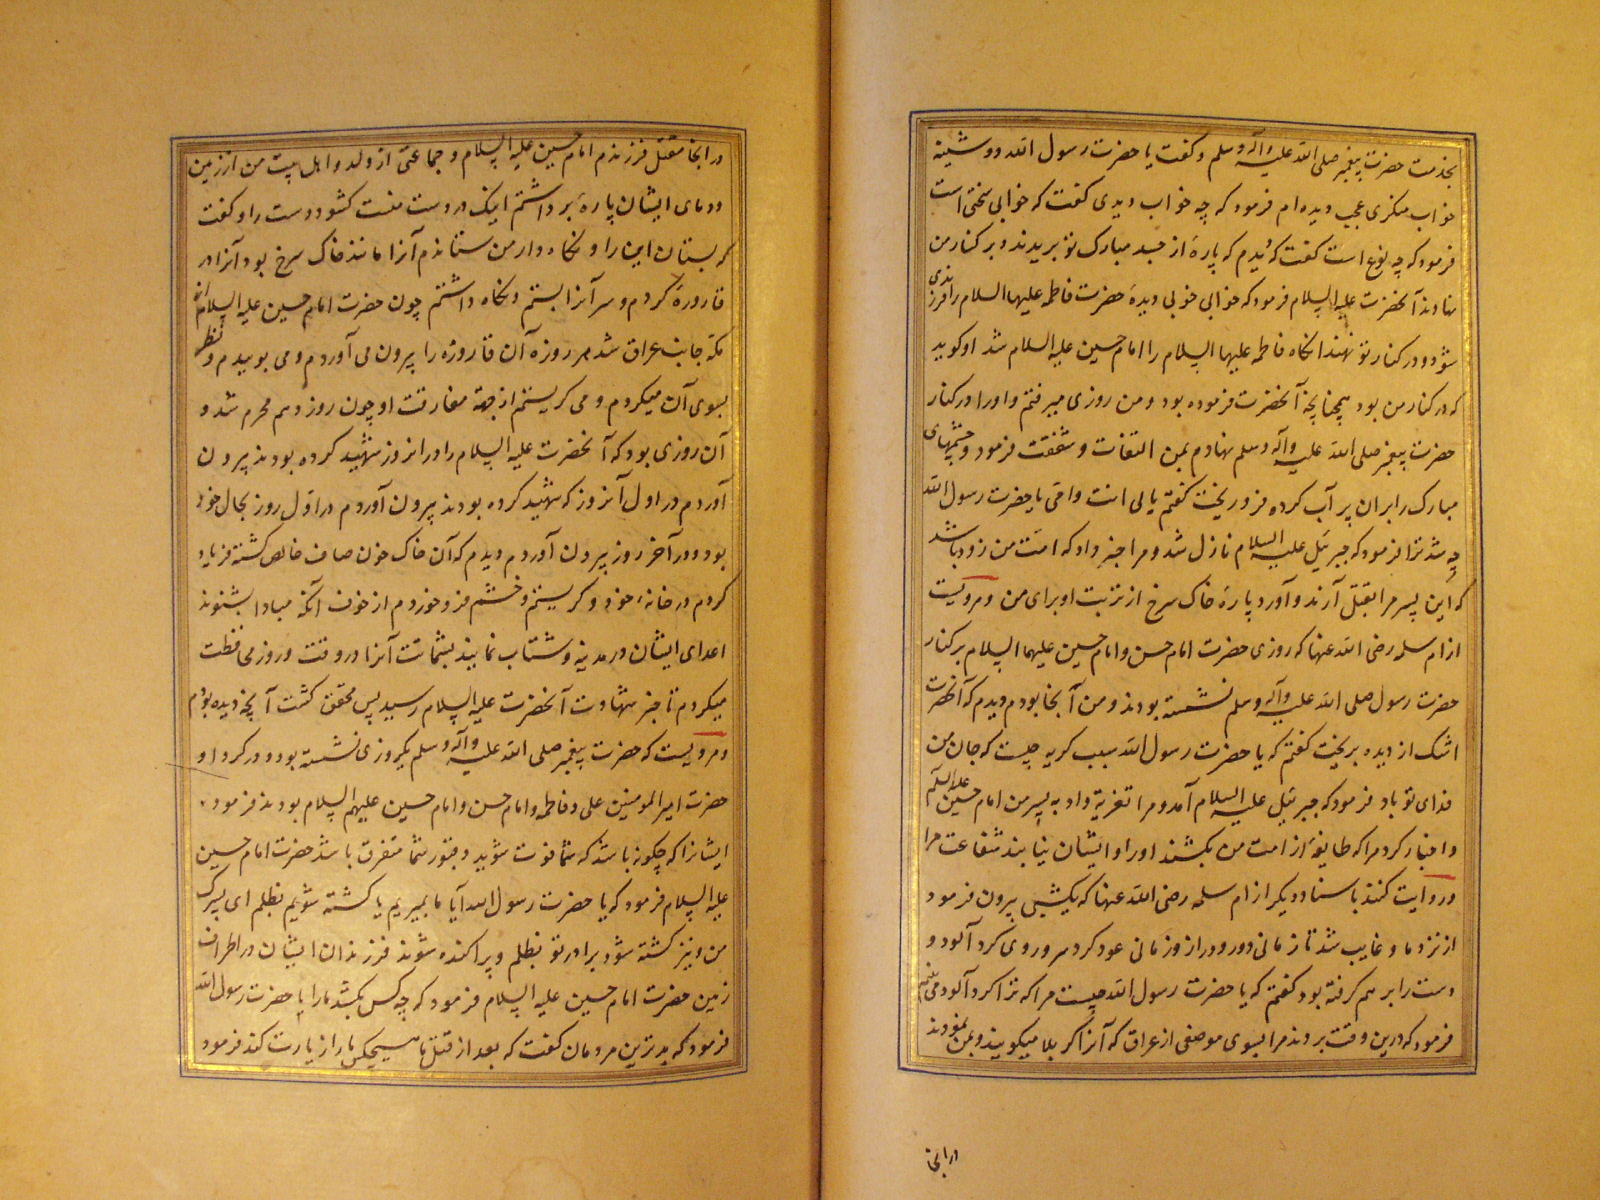 بخدمت حضرت پیغمبر صلی الله علیه وآله وسلم وکفت یا حضرت رسول الله دوشینه
خواب منکری عجب دیده ام فرمود که چه خواب دیدی کفت که خوابی سختی است
فرمود که چه نوع است کفت که دیدم که پارهٔ از جسد مبارک تو بریدند و بر کنار من
نهادند آنحضرت علیه السلام فرمود که خوابی خوبی دیدهٔ حضرت فاطمه علیها السلام را فرزندی
شود و در کنار تو نهند انکاه فاطمه علیها السلام را امام حسین علیه السلام شد او کوید
که در کنار من بود همچنانچه آنحضرت فرموده بود و من روزی میرفتم و او را در کنار
حضرت پیغمبر صلی الله علیه وآله وسلم نهادم بمن التفات و شفقت فرمود و چشمهای
مبارک را بران پر آب کرده فرو ریخت کفتم بابی انت وامی یا حضرت رسول الله
چه شد ترا فرمود که جبرئیل علیه السلام نازل شد و مرا خبر داد که امت من زود باشد
که این پسر مرا بقتل آرند و آورد پارهٔ خاک سرخ از تربت او برای من و مرویست
از ام سلمه رضی الله عنها که روزی حضرت امام حسن و امام حسین علیهما السلام بر کنار
حضرت رسول صلی الله علیه وآله وسلم نشسته بودند و من آنجا بودم دیدم که آنحضرت
اشک از دیده بریخت کفتم که یا حضرت رسول الله سبب کریه چیست که جان من
فدای تو باد فرمود که جبرئیل علیه السلام آمد و مرا تعزیة داد به پسر من امام حسین علیه السلام
و اخبار کرد مرا که طایفهٔ از امت من بکشند او را و ایشان نیابند شفاعت مرا
و روایت کنند باسناد دیکر از ام سلمه رضی الله عنها که یکشبی بیرون فرمود
از نزد ما و غایب شد تا زمانی دور و دراز و زمانی عود کرد سر و روی کرد آلود و
دست را بر هم کرفته بود کفتم که یا حضرت رسول الله چیست مرا که ترا کرد آلود می بینم
فرمود که درین وقت بردند مرا بسوی موضعی از عراق که آنرا کربلا میکویند و بمن نمودند
در انجا
در انجا مقتل فرزندم امام حسین علیه السلام و جماعتی از ولد و اهل بیت من از زمین
و دمای ایشان پارهٔ بر داشتم اینک در دست منست کشود دست را و کفت
که بستان این را و نکاه دار من ستاندم آنرا مانند خاک سرخ بود آنرا در
قارورهٔ کردم و سر آنرا بستم و نکاه داشتم چون حضرت امام حسین علیه السلام از
مکه جانب عراق شد هر روزه آن قاروره را بیرون می آوردم و می بوییدم و نظر
بسوی آن میکردم و می کریستم از جهة مفارقت او چون روز دهم محرم شد و
آن روزی بود که آنحضرت علیه السلام را در انروز شهید کرده بودند بیرون
آوردم در اول آنروز که شهید کرده بودند بیرون آوردم در اول روز بحال خود
بود و در آخر روز بیرون آوردم دیدم که آن خاک خون صاف خالص کشته فریاد
کردم در خانهٔ خود و کریستم و خشم فرو خوردم از خوف آنکه مبادا بشنوند
اعدای ایشان در مدینه و شتاب نمایند بشماتت آنرا در وقت و روز محافظت
میکردم تا خبر شهادت آنحضرت علیه السلام رسید پس محقق کشت آنچه دیده بودم
و مرویست که حضرت پیغمبر صلی الله علیه وآله وسلم یکروزی نشسته بود و در کرد او
حضرت امیر المومنین علی و فاطمه و امام حسن و امام حسین علیهم السلام بودند فرمود
ایشانرا که چکونه باشد که شما فوت شوید و قبور شما متفرق باشد حضرت امام حسین
علیه السلام فرمود که یا حضرت رسول الله آیا ما بمیریم یا کشته شویم بظلم ای پسرک
من و نیز کشته شود برادر تو بظلم و پراکنده شوند فرزندان ایشان در اطراف
زمین حضرت امام حسین علیه السلام فرمود که چه کس بکشد ما را یا حضرت رسول الله
فرمود که بدترین مردمان کفت که بعد از قتل ما هیچکس ما را زیارت کند فرمود